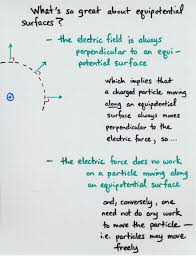 What's so great about equipotential
surfaces?
- the electric field is always
perpendicular to an equi-
potential surface
which implies that
a charged particle moving
along an equipotential
surface always moves
perpendicular to the
electric force, so...
- the electric force does no work
on a particle moving along
an equipotential surface
and, conversely, one
need not do any work
to move the particle —
i.e. particles may move
freely